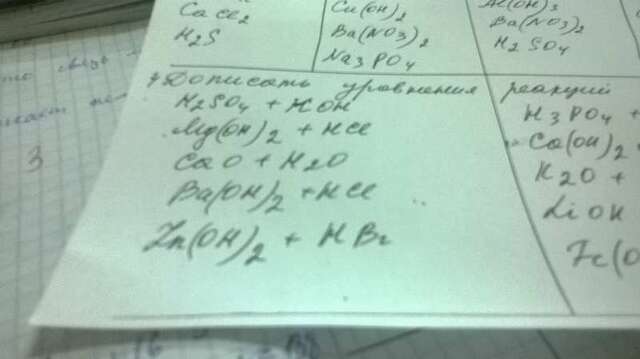 CaCl2
H2S
Cu(OH)2
Ba(NO3)2
Na3PO4
Al(OH)3
Ba(NO3)2
H2SO4
Дописать уравнения реакций
H2SO4 + KOH
Mg(OH)2 + HCl
CaO + H2O
Ba(OH)2 + HCl
Zn(OH)2 + HBr
H3PO4 +
Ca(OH)2
K2O +
LiOH
Fe(O
3